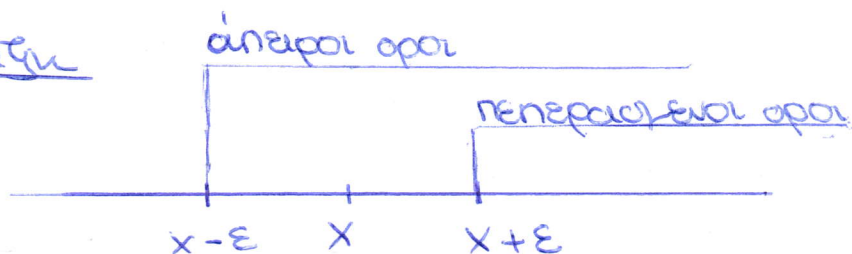 άπειροι οροι
πεπερασμενοι οροι
x-ε x x+ε